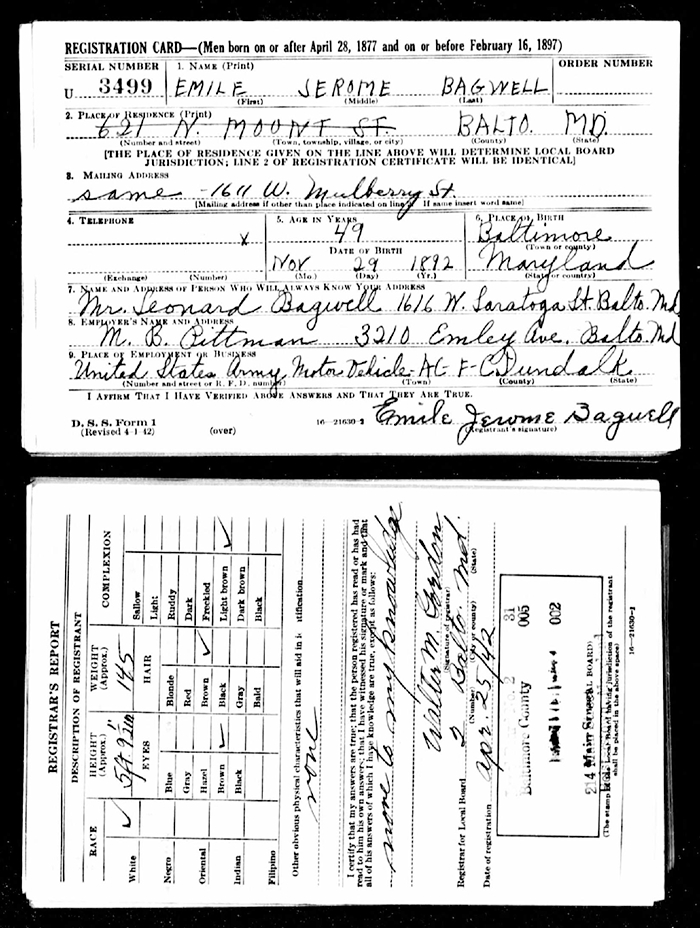 REGISTRATION CARD—(Men born on or after April 28, 1877 and on or before February 16, 1897)
SERIAL NUMBER 1. NAME (Print) ORDER NUMBER
U 3499 EMILE JEROME BAGWELL
(First) (Middle) (Last)
2. PLACE OF RESIDENCE (Print)
621 N. MOUNT ST. BALTO. MD.
(Number and street) (Town, township, village, or city) (County) (State)
[THE PLACE OF RESIDENCE GIVEN ON THE LINE ABOVE WILL DETERMINE LOCAL BOARD
JURISDICTION; LINE 2 OF REGISTRATION CERTIFICATE WILL BE IDENTICAL]
3. MAILING ADDRESS
same - 1611 W. Mulberry St.
[Mailing address if other than place indicated on line 2. If same insert word same]
4. TELEPHONE 5. AGE IN YEARS 6. PLACE OF BIRTH
x 49 Baltimore
DATE OF BIRTH (Town or county)
Nov 29 1892 Maryland
(Exchange) (Number) (Mo.) (Day) (Yr.) (State or country)
7. NAME AND ADDRESS OF PERSON WHO WILL ALWAYS KNOW YOUR ADDRESS
Mr. Leonard Bagwell 1616 W. Saratoga St. Balto. Md
8. EMPLOYER'S NAME AND ADDRESS
M. B. Pittman 3210 Emley Ave. Balto. Md
9. PLACE OF EMPLOYMENT OR BUSINESS
United States Army Motor Vehicle Dundalk
(Number and street or R. F. D. number) (Town) (County) (State)
I AFFIRM THAT I HAVE VERIFIED ABOVE ANSWERS AND THAT THEY ARE TRUE.
Emile Jerome Bagwell
D. S. S. Form 1
(Revised 4-1-42) (over) 16—21630-2 (Registrant's signature)
REGISTRAR'S REPORT
DESCRIPTION OF REGISTRANT
RACE HEIGHT (Approx.) WEIGHT (Approx.) COMPLEXION
White ✓ 5 ft. 9 in 145 Sallow
EYES HAIR Light
Negro Blue Blonde Ruddy
Gray Red Dark
Oriental Hazel Brown ✓ Freckled
Brown ✓ Black Light brown ✓
Indian Black Gray Dark brown
Filipino Bald Black
Other obvious physical characteristics that will aid in identification.
none
I certify that my answers are true; that the person registered has read or has had
read to him his own answers; that I have witnessed his signature or mark and that
all of his answers of which I have knowledge are true, except as follows:
none to my knowledge
Walter M. Gordon
(Signature of registrar)
Registrar for Local Board 2 Balto Md.
(Number) (City or county) (State)
Date of registration Apr. 25/42
2 31
Baltimore County 005
002
214 Main Street
(The stamp of the Local Board having jurisdiction of the registrant
shall be placed in the above space)
16—21630-1